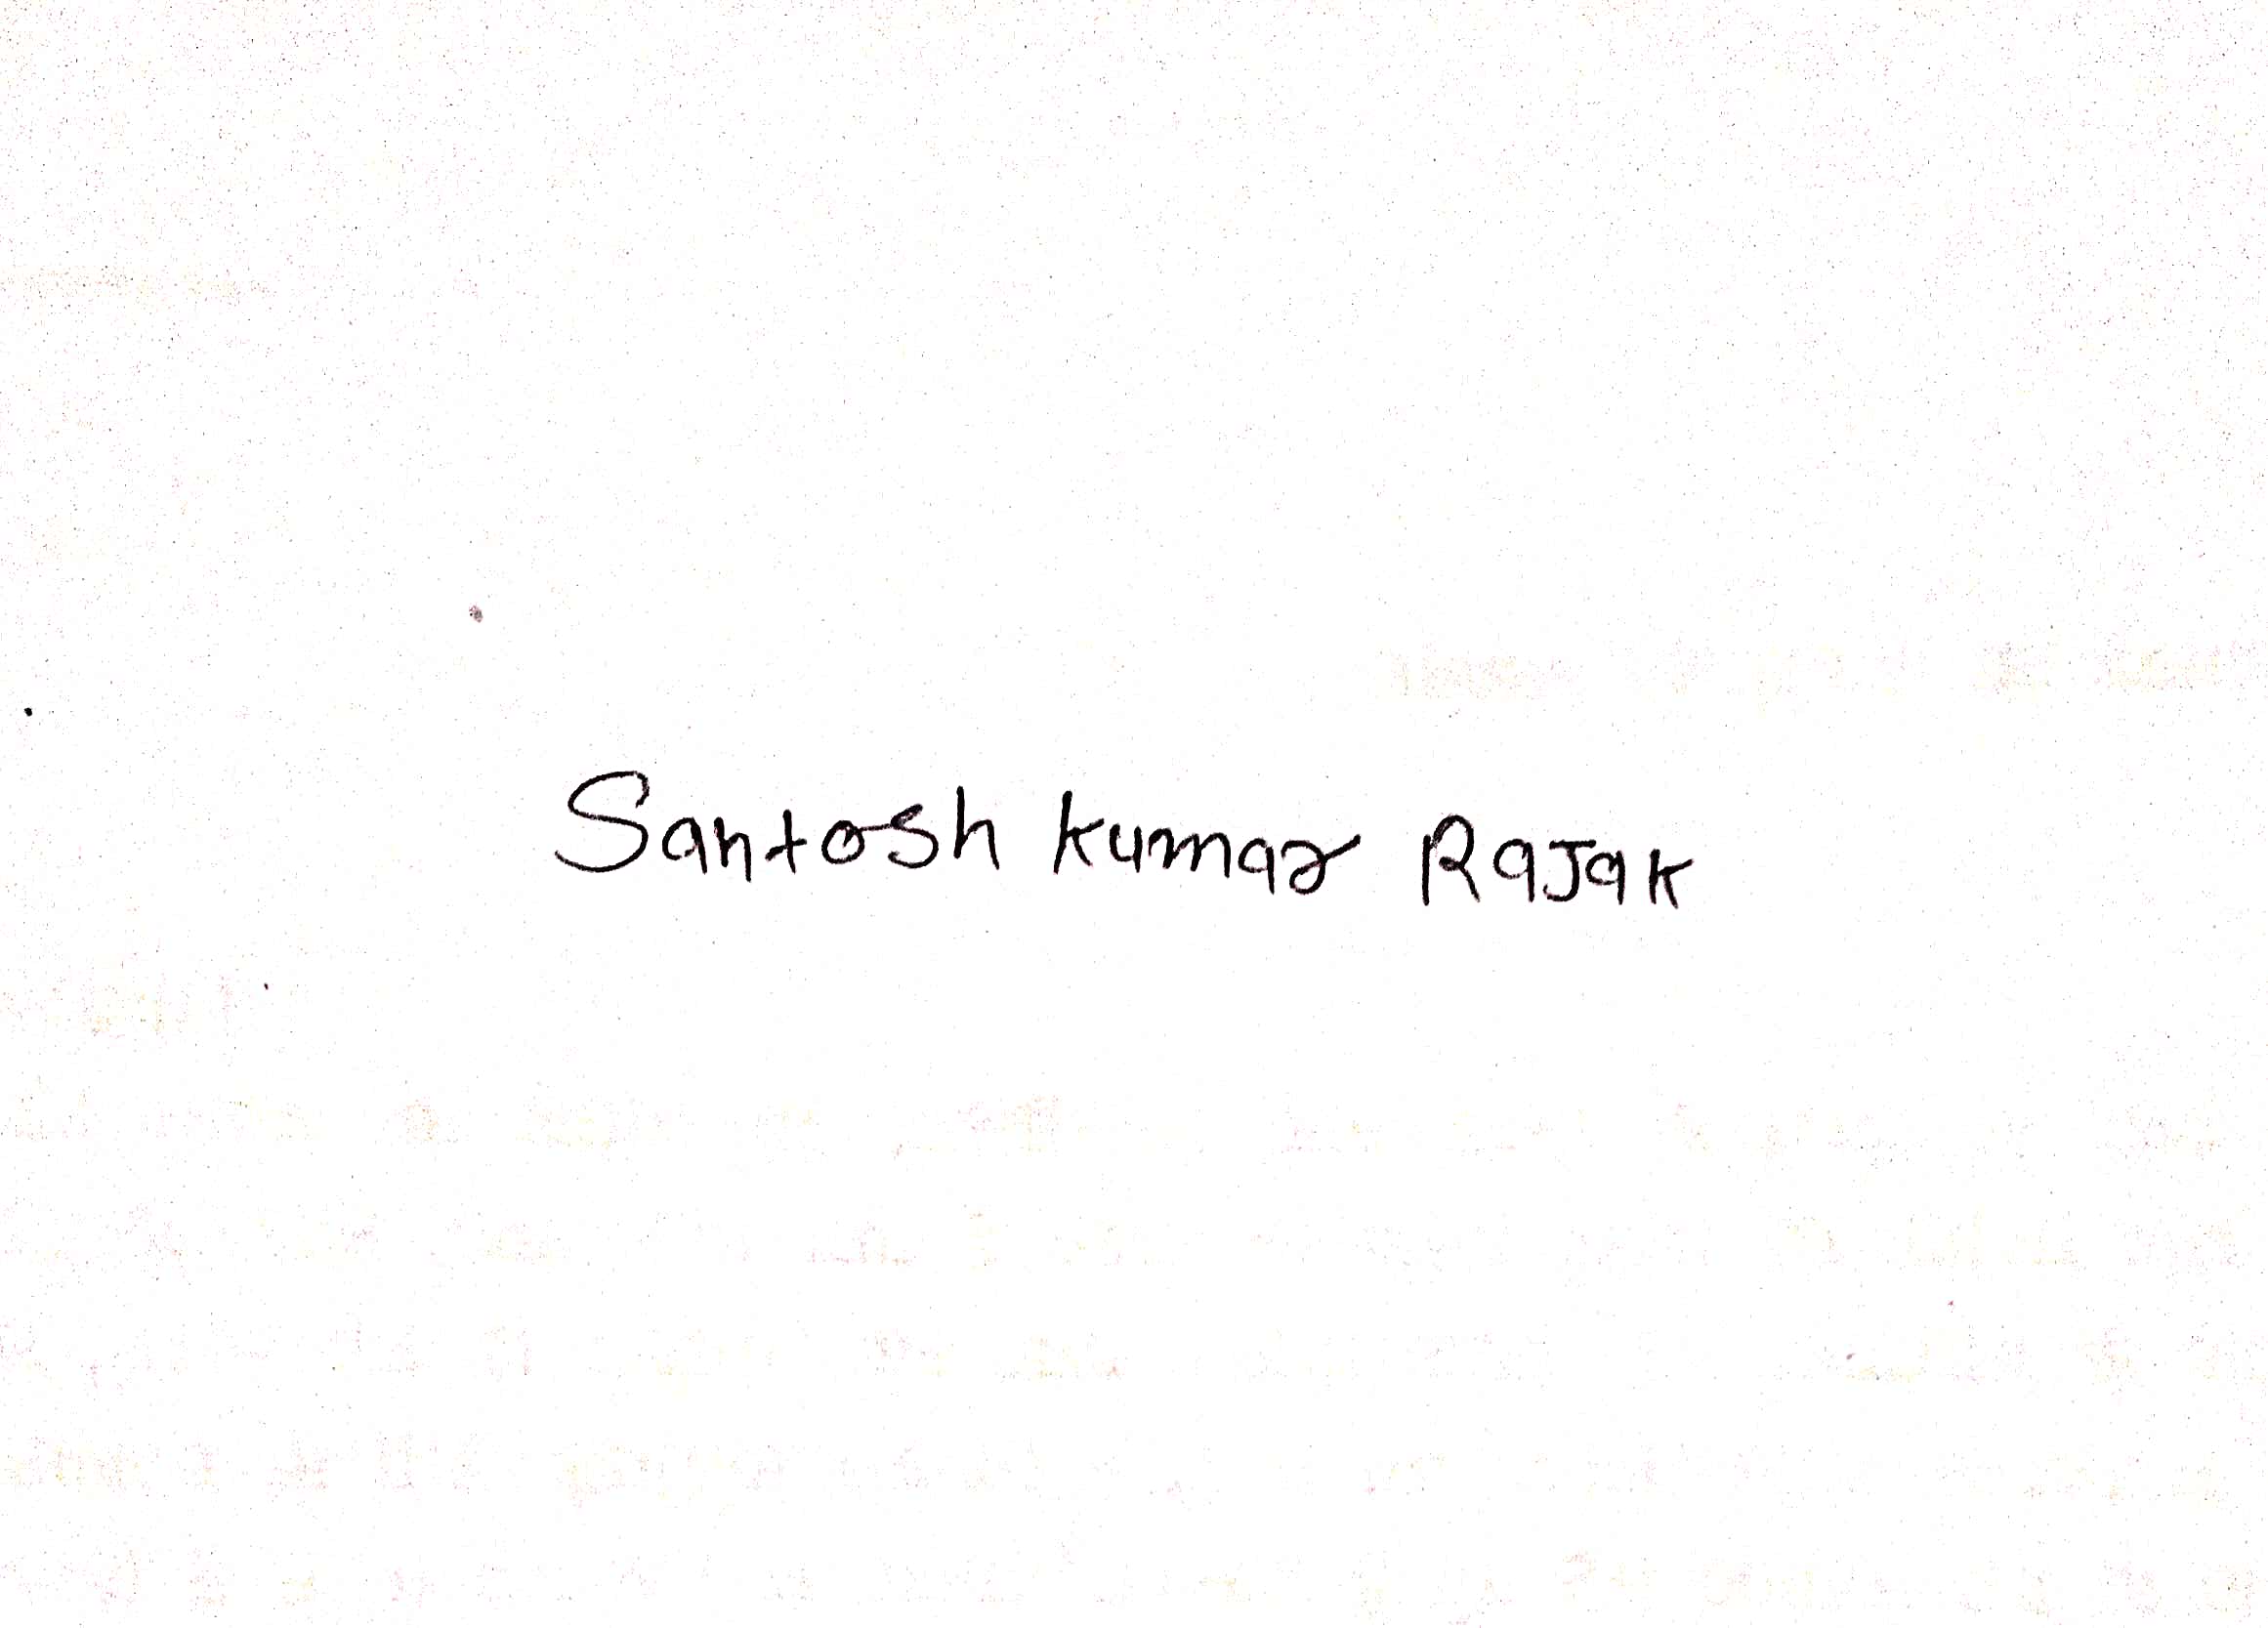 Santosh kumar RaJak